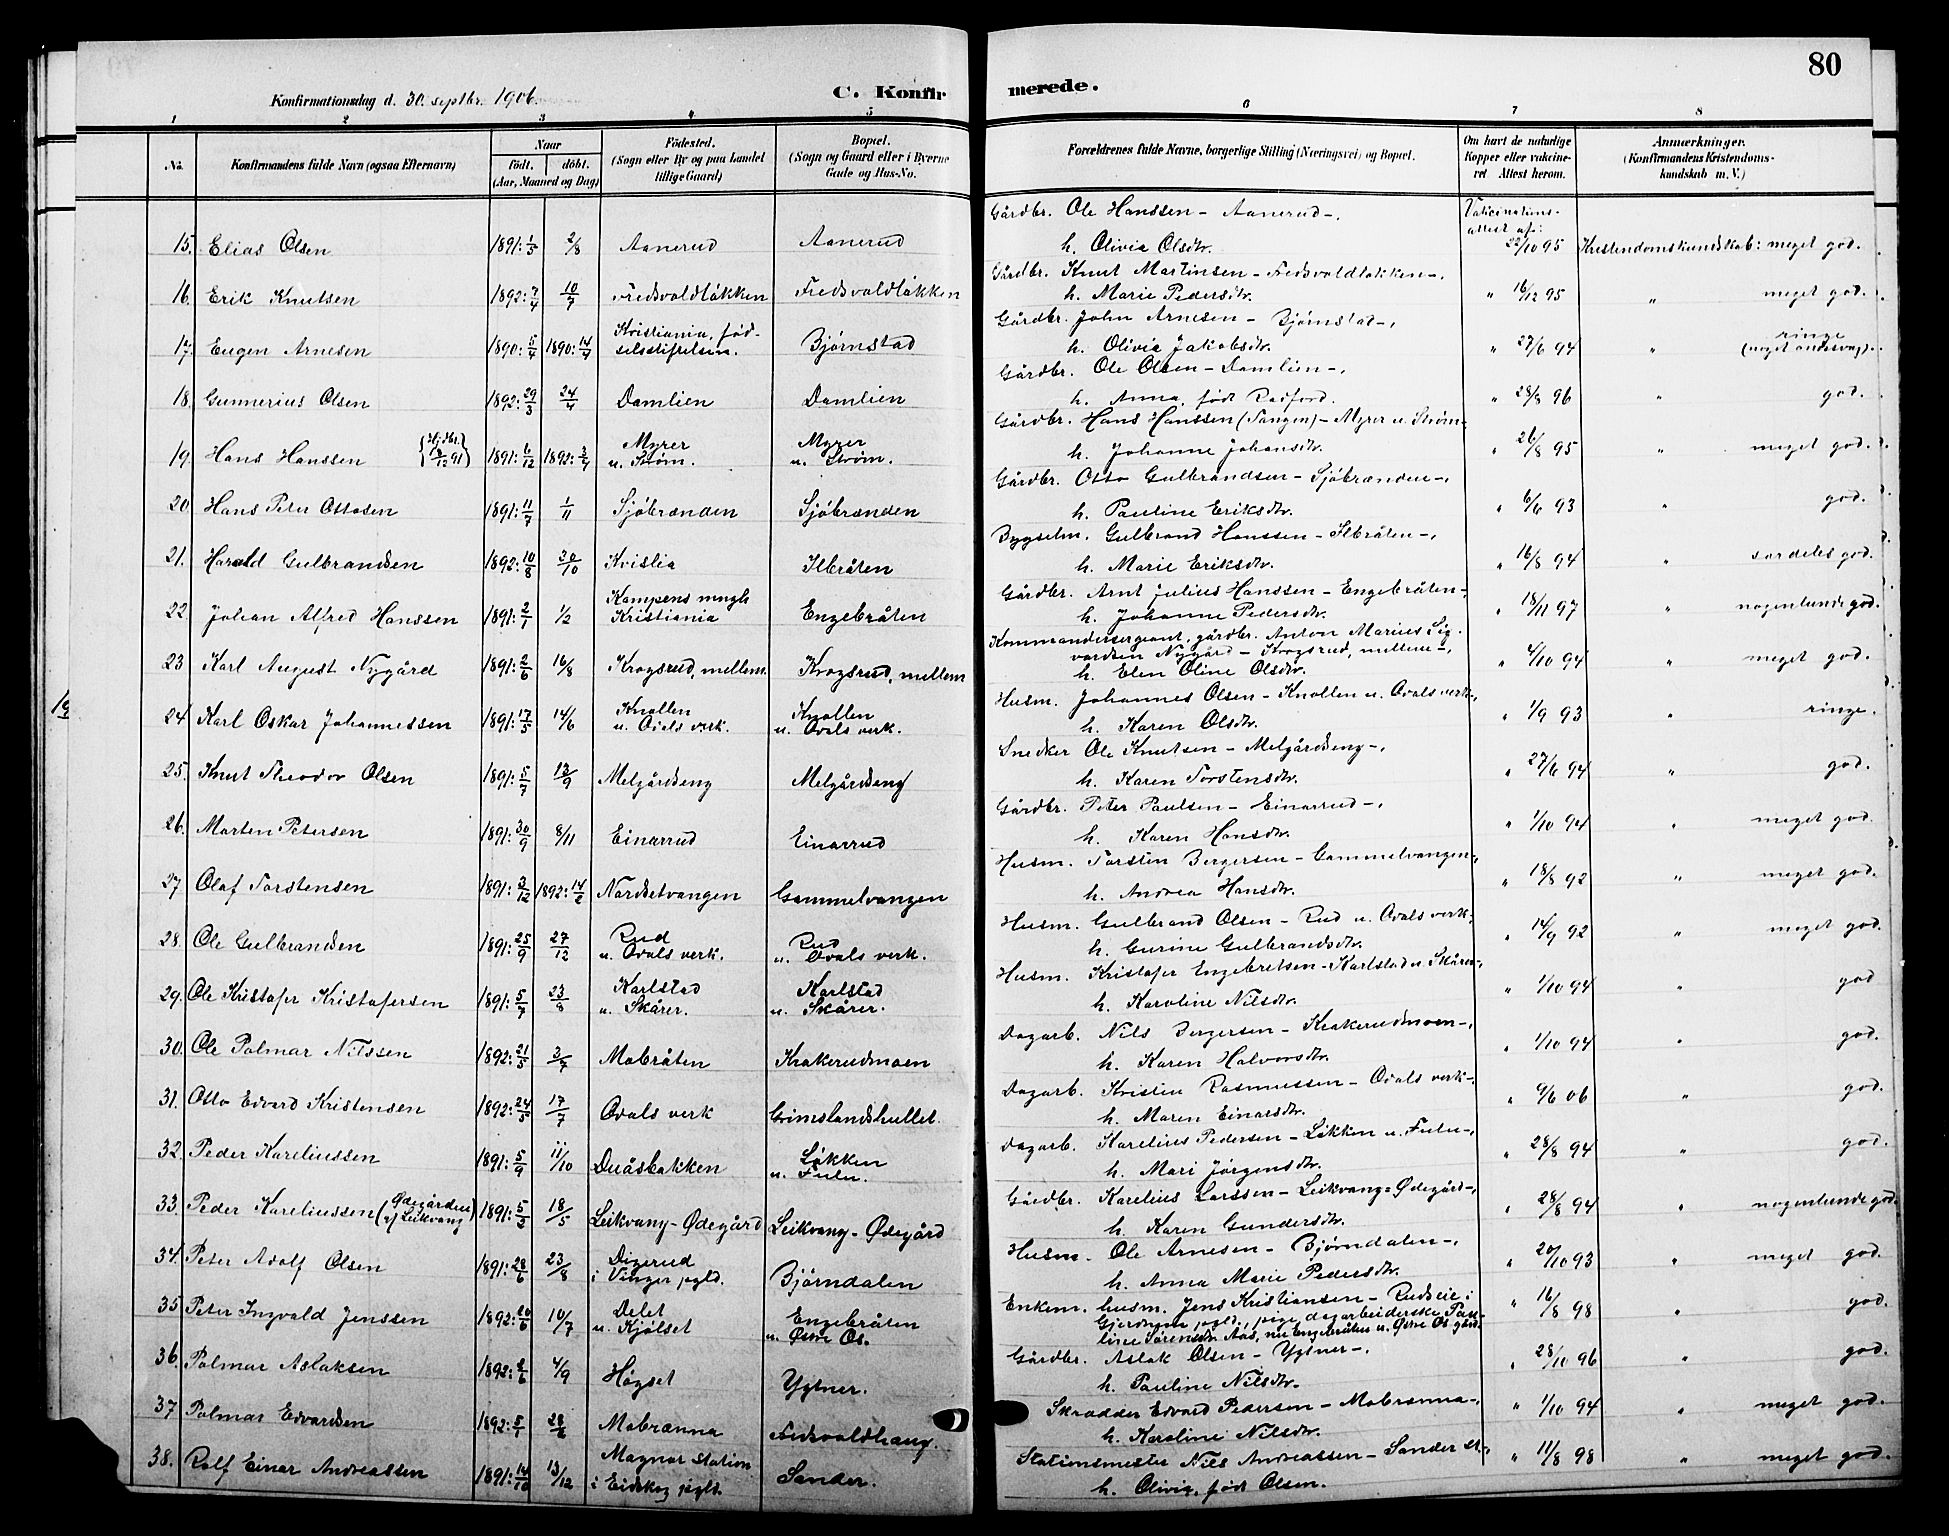 80
Konfirmationsdag d. 30. septbr. 1906.
C. Konfirmerede.
1 2 3 4 5 6 7 8
No. Konfirmandens fulde Navn (ogsaa Efternavn) Naar født. døbt. (Aar, Maaned og Dag) Fødested. (Sogn eller By og paa Landet tillige Gaard) Bopæl. (Sogn og Gaard eller i Byerne Gade og Hus-No. Forældrenes fulde Navne, borgerlige Stilling (Næringsvei) og Bopæl. Om havt de naturlige Kopper eller vaccineret Attest herom. Anmærkninger. (Konfirmandens Kristendomskundskab m. V.)
Gårdbr. Ole Hanssen - Aanerud -, Vakcinations-attest af:
15. Elias Olsen 1891: 1/5 2/8 Aanerud Aanerud h. Olivia Olsdtr. 22/10 95 Kristendomskundskab: meget god.
Gårdbr. Knut Martinsen - Fredsvoldløkken -,
16. Erik Knutsen 1892: 7/4 10/7 Fredsvoldløkken Fredsvoldløkken h. Marie Pedersdtr. " 16/12 95 " meget god.
Gårdbr. John Arnesen - Bjørnstad -,
17. Eugen Arnesen 1890: 5/4 1890: 14/4 Kristiania, fødselsstiftelsen. Bjørnstad h. Olivia Jakobsdtr. " 27/6 94 " ringe (noget åndssvag).
Gårdbr. Ole Olsen - Damlien -,
18. Gunnerius Olsen 1892: 29/3 24/4 Damlien Damlien h. Anna, født Radford. " 28/8 96 " god.
Gårdbr. Hans Hanssen (Tangen) - Myrer u. Strøm -
19. Hans Hanssen 1891: 6/12 Myrer u. Strøm. Myrer u. Strøm. h. Johanne Johansdtr. " 26/8 95 " meget god.
Gårdbr. Otto Gulbrandsen - Sjøbrænden -,
20. Hans Peter Ottosen 1891: 11/7 1/11 Sjøbrænden Sjøbrænden h. Pauline Eriksdtr. " 6/6 93 " god.
Bygselm. Gulbrand Hanssen - Ilbråten -,
21. Harald Gulbrandsen 1892: 10/8 30/10 Kvislia Ilbråten h. Marie Eriksdtr. " 16/8 94 " særdeles god.
Gårdbr. Arnt Julius Hanssen - Engebråten -,
22. Johan Alfred Hanssen 1891: 2/1 1/2 Kampens mngh. Kristiania Engebråten h. Johanne Pedersdtr. " 18/11 97 " nogenlunde god.
Kommandersergeant, gårdbr. Anton Marius Sigvardsen Nygård - Krogsrud, mellem -,
23 Karl August Nygård 1891: 2/6 16/8 Krogsrud, mellem. Krogsrud, mellem h. Elen Oline Olsdtr. " 4/10 94 " meget god.
Husm. Johannes Olsen - Knollen u. Odals verk -,
24 Karl Oskar Johannessen 1891: 17/5 14/6 Knollen u. Odals verk. Knollen u. Odals verk. h. Karen Olsdtr. " 1/9 93 " ringe.
Snedker Ole Knutsen - Melgårdseng -,
25. Knut Theodor Olsen 1891: 5/7 13/9 Melgårdseng Melgårdseng h. Karen Torstensdtr. " 27/6 94 " god.
Gårdbr. Peter Paulsen - Einarrud -,
26. Morten Petersen 1891: 30/9 8/11 Einarrud Einarrud h. Karen Hansdtr. " 1/10 94 " meget god.
Husm. Torsten Bergersen - Gammelvangen -,
27 Olaf Torstensen 1891: 3/12 1892: 14/2 Nordsetvangen Gammelvangen h. Andrea Hansdtr. " 18/8 92 " meget god.
Husm. Gulbrand Olsen - Rud u. Odals verk -,
28. Ole Gulbrandsen 1891: 25/9 27/12 Rud u. Odals verk. Rud u. Odals verk. h. Gurine Gulbrandsdtr. " 14/9 92 " meget god.
Husm. Kristofer Engebretsen - Karlstad u. Skårer -,
29. Ole Kristofer Kristofersen 1891: 5/7 23/8 Karlstad u. Skårer. Karlstad u. Skårer. h. Karoline Nilsdtr. " 1/10 94 " god
Dagarb. Nils Bergersen - Krakerudmoen -,
30. Ole Palmar Nilssen 1892: 21/5 3/7 Mobråten Krakerudmoen h. Karen Halvorsdtr. " 1/10 94 " god.
Dagarb. Kristen Rasmussen - Odals verk -,
31. Otto Edvard Kristensen 1892: 24/5 17/7 Odals verk Grimslandshullet. h. Maren Einarsdtr. " 9/6 06 " god.
Dagarb. Karelius Pedersen - Løkken u. Fulu -,
32. Peder Kareliussen 1891: 5/9 11/10 Duåsbakken Løkken u. Fulu. h. Mari Jørgensdtr. " 28/8 94 " god.
Gårdbr. Karelius Larssen - Leikvang=Ødegård -,
33. Peder Kareliussen (Ødegården v/ Leikvang) 1891: 5/3 18/5 Leikvang-Ødegård Leikvang-Ødegård h. Karen Gundersdtr. " 28/8 94 " nogenlunde god
Husm. Ole Arnesen - Bjørndalen -,
34. Peter Adolf Olsen 1891: 28/6 23/8 Digerud i Vinger pgld. Bjørndalen h. Anna Marie Pedersdtr. " 20/10 93 " meget god.
Enkem. husm. Jens Kristiansen - Rudseie i
35. Peter Ingvald Jenssen 1892: 20/6 10/7 Delet u. Kjølset Engebråten u. Østre Os. Gjerdrum pgld., pige, dagarbeiderske Pauline Sørensdtr. Aas, nu Engebråten u. Østre Os " 16/8 98 " god.
Gårdbr. Aslak Olsen - Ygtner -,
36. Palmar Aslaksen 1892: 2/6 4/9 Høgset Ygtner. h. Pauline Nilsdtr. " 28/10 96 " god.
Skrædder Edvard Pedersen - Mobrænna -,
37 Palmar Edvardsen 1892: 5/1 28/2 Mobrænna Fredsvoldhaug. h. Karoline Nilsdtr. " 1/10 94 " meget god.
Stationsmester Nils Andreassen - Sander st. -,
38. Rolf Einar Andreassen 1891: 14/10 13/12 Magnor station i Eidskog pgld. Sander. h. Olivia, født Olsen. " 11/8 98 " meget god.